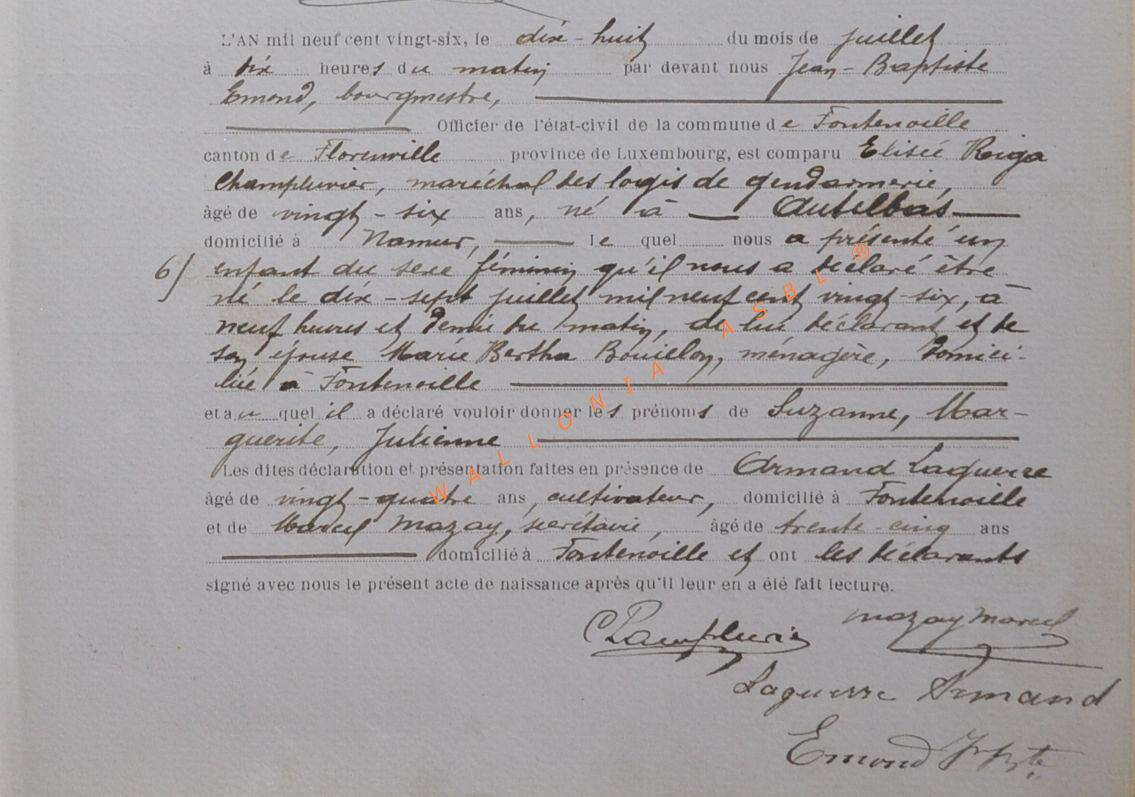 L'AN mil neuf cent vingt-six, le dix-huit du mois de juillet
à dix heures du matin par devant nous Jean-Baptiste
Emond, bourgmestre,
Officier de l'état-civil de la commune de Fontenoille
canton de Florenville province de Luxembourg, est comparu Elisée
Champluvier, maréchal des logis de gendarmerie,
âgé de vingt-six ans, né à Autelbas
domicilié à Namur, le quel nous a présenté un
6) enfant du sexe féminin qu'il nous a déclaré être
né le dix-sept juillet mil neuf cent vingt-six, à
neuf heures et demie du matin, de lui déclarant et de
son épouse Marie Bertha Bouillon, ménagère, domici-
liée à Fontenoille
et au quel il a déclaré vouloir donner les prénoms de Suzanne, Mar-
guerite, Julienne
Les dites déclaration et présentation faites en présence de Armand Laguerre
âgé de vingt-quatre ans, cultivateur, domicilié à Fontenoille
et de Marcel Mazay, secrétaire, âgé de trente-cinq ans
domicilié à Fontenoille et ont les déclarants
signé avec nous le présent acte de naissance après qu'il leur en a été fait lecture.
Champluvier Mazay Marcel
Laguerre Armand
Emond
WALLONIA ASBL®